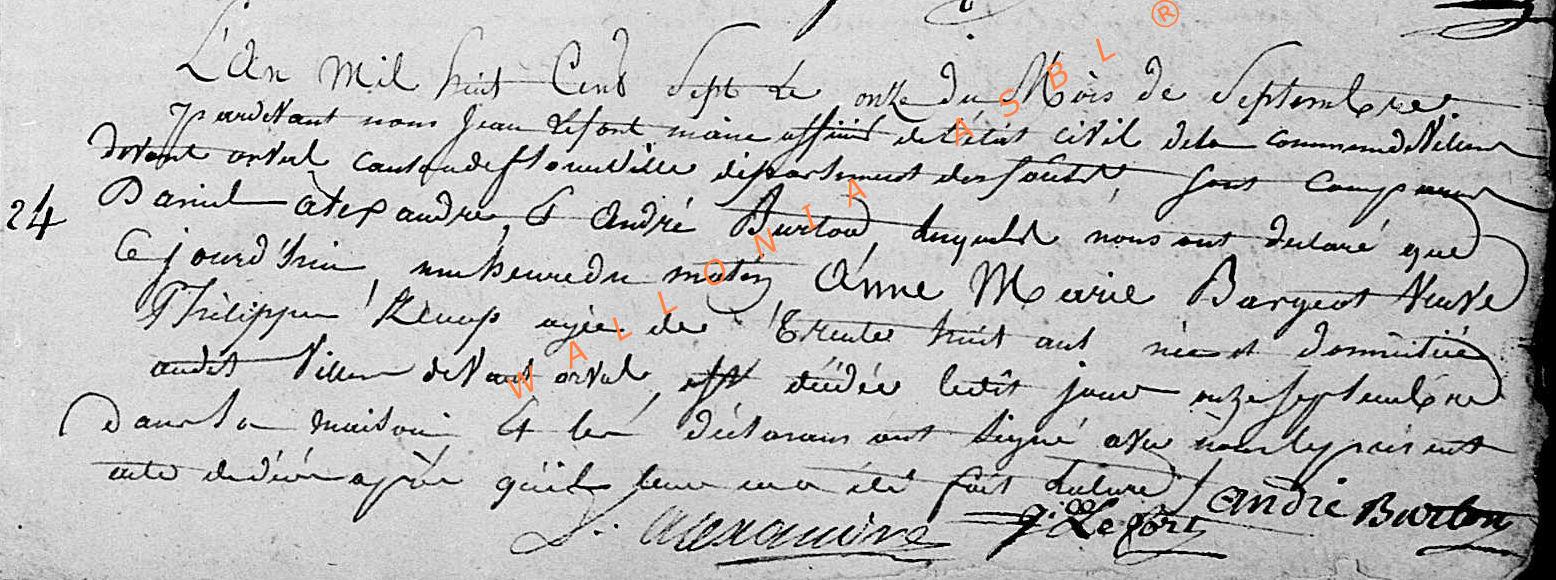 L'An mil huit Cent Sept Le onze du Mois de Septembre
pardevant nous Jean Lefort maire officié de l'état civil dela commune de Villers
devant orval canton de florenville département des forêts, sont comparus
24
Daniel alexandre, & André Burton, lesquels nous ont declaré que
Ce jourd'hui, une heure du matin Anne Marie Bargeot veuve
Philippe agée de trente huit ans née et domicilié
audit Villers devant orval, est décédée ledit jour onze septembre
dans la maison & les déclarans ont signé avec nous le présent
acte de décés après qu'il leur en a été fait lecture
andré Burton
D. alexandre J. Lefort
WALLONIA ASBL ®